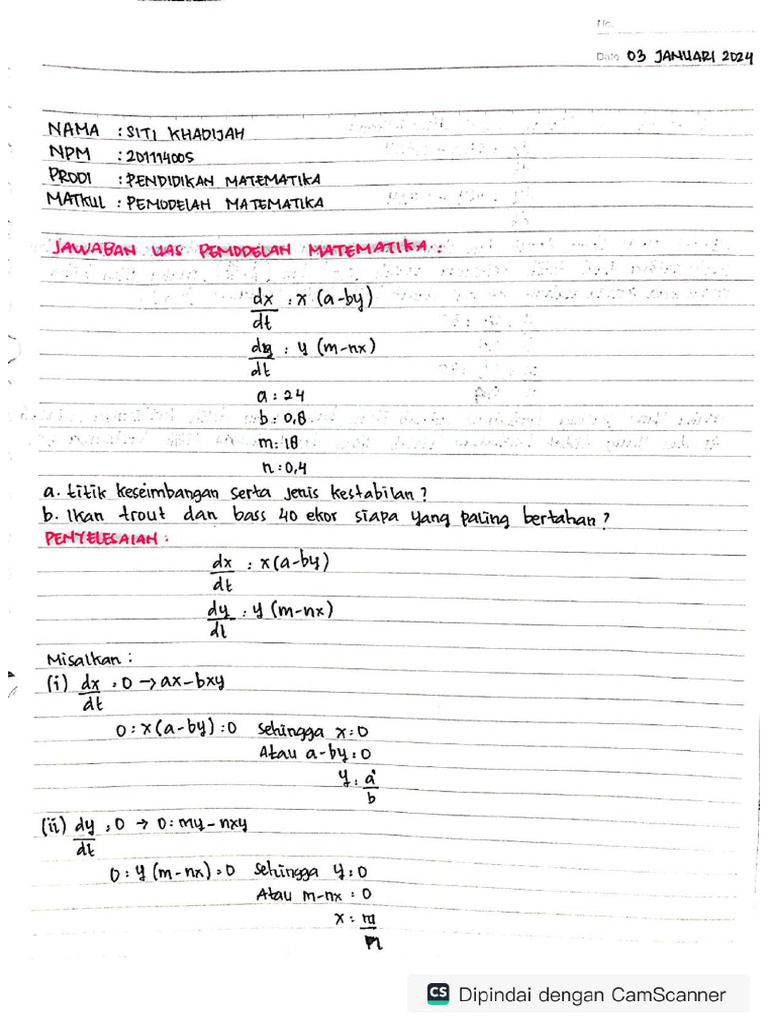 No.
Date 03 JANUARI 2024
NAMA : SITI KHADIJAH
NPM : 201114005
PRODI : PENDIDIKAN MATEMATIKA
MATKUL : PEMODELAN MATEMATIKA
JAWABAN UAS PEMODELAN MATEMATIKA :
dx/dt = x (a-by)
dy/dt = y (m-nx)
a = 24
b = 0,8
m = 18
n = 0,4
a. titik keseimbangan serta jenis kestabilan ?
b. Ikan trout dan bass 40 ekor siapa yang paling bertahan ?
PENYELESAIAN :
dx/dt = x(a-by)
dy/dt = y (m-nx)
Misalkan :
(i) dx/dt = 0 → ax-bxy
0 = x(a-by) = 0 sehingga x = 0
Atau a-by = 0
y = a/b
(ii) dy/dt = 0 → 0 = my-nxy
0 = y (m-nx) = 0 sehingga y = 0
Atau m-nx = 0
x = m/n
CS Dipindai dengan CamScanner